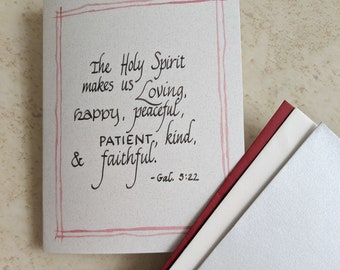 The Holy Spirit
makes us Loving,
happy, peaceful,
PATIENT, kind,
& faithful.
-Gal. 5:22